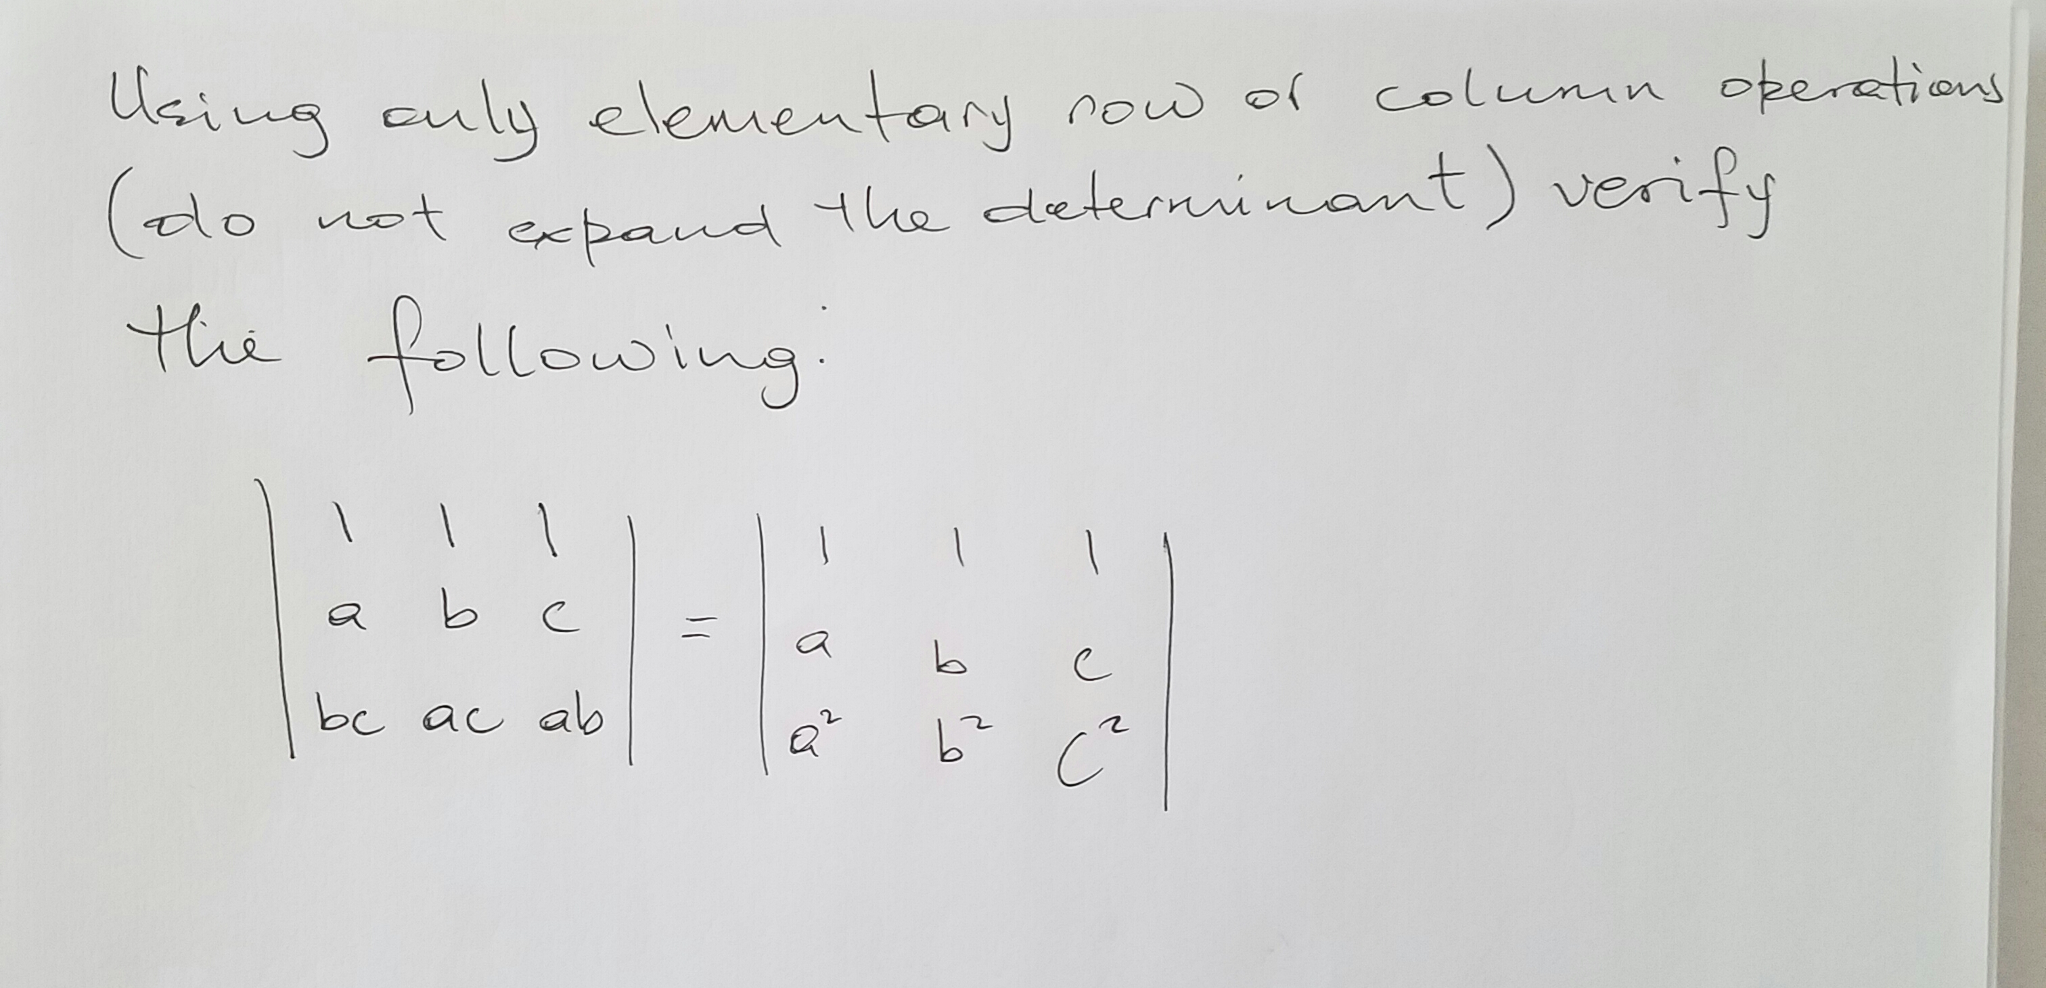 Using only elementary row or column operations
(do not expand the determinant) verify
the following:
| 1 1 1 | | 1 1 1 |
| a b c | = | a b c |
| bc ac ab | | a² b² c² |